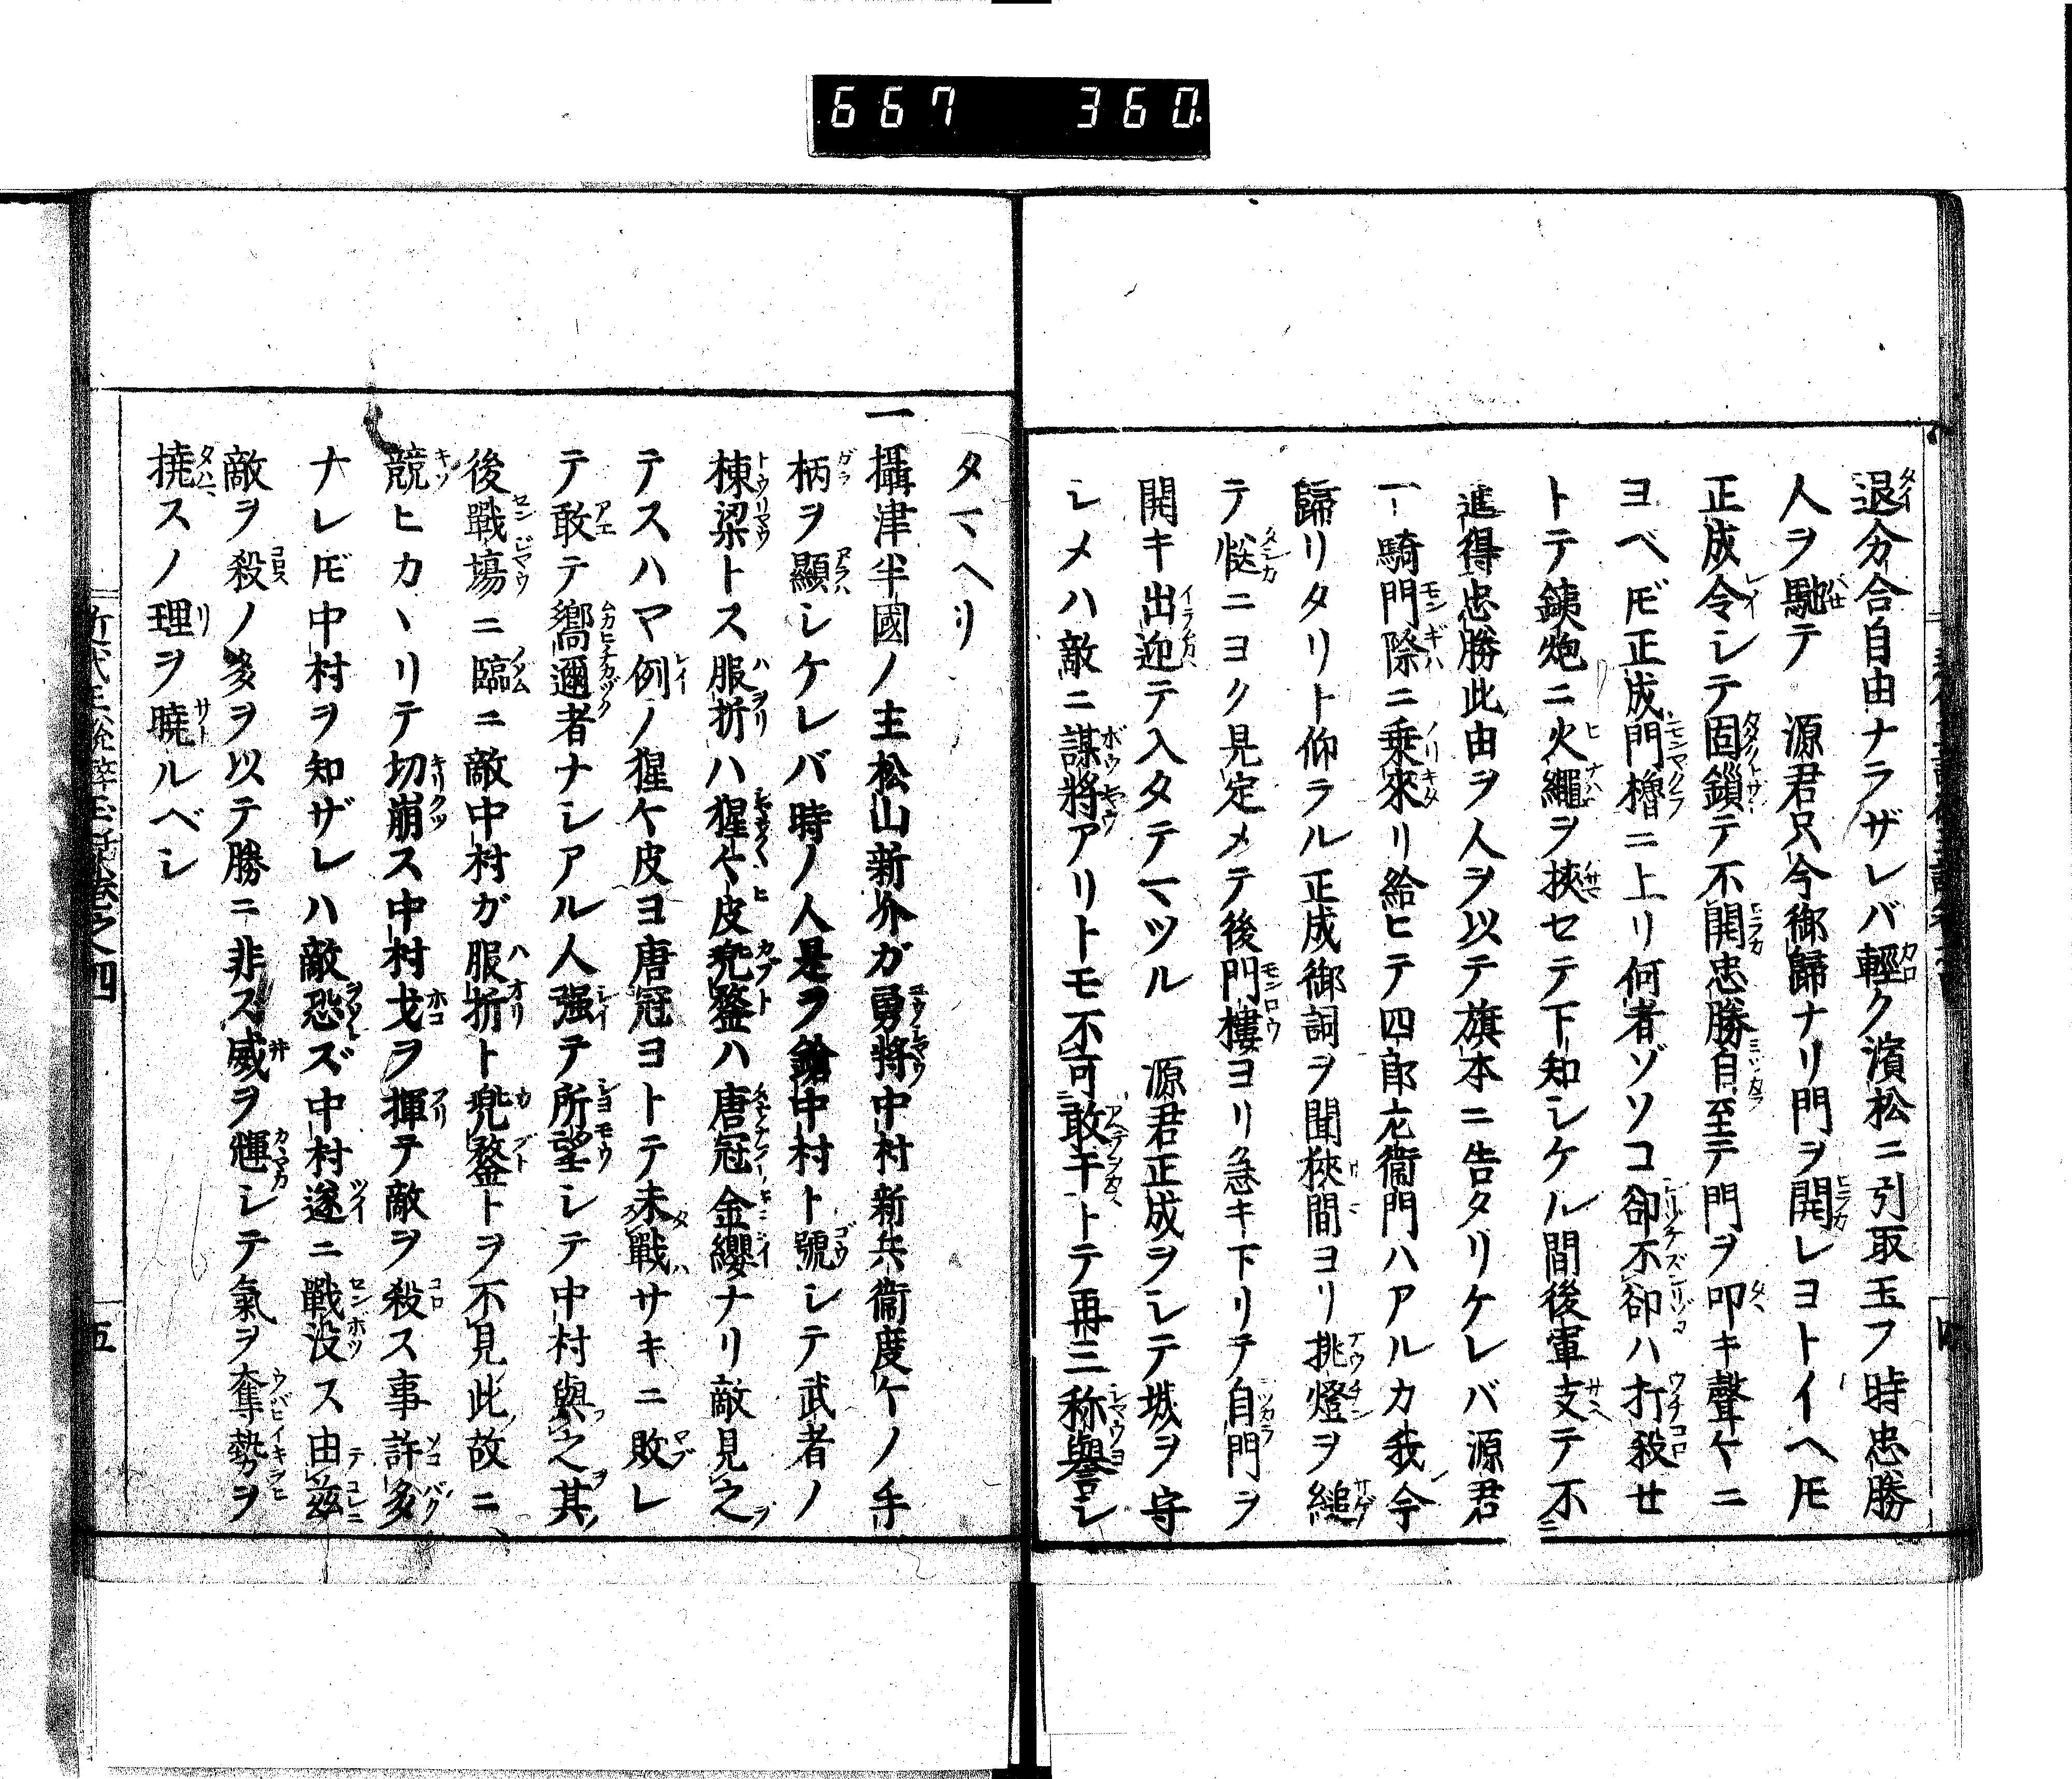 667 360
退分合自由ナラザレバ輕ク濱松ニ引取玉フ時忠勝
人ヲ馳テ 源君只今御歸ナリ門ヲ開レヨトイヘ𪜈
正成令シテ固鎖テ不開忠勝自至テ門ヲ叩キ聲ケニ
ヨベ𪜈正成門櫓ニ上リ何者ゾソコ卻不卻ハ打殺せ
トテ銕炮ニ火繩ヲ挾セテ下知シケル間後軍支テ不
進得忠勝此由ヲ人ヲ以テ旗本ニ告タリケレバ源君
一騎門際ニ乗來リ給ヒテ四郎左衞門ハアルカ我今
歸リタリト仰ラル正成御詞ヲ聞狹間ヨリ挑燈ヲ縋
テ慥ニヨク見定メテ後門樓ヨリ急キ下リテ自門ヲ
開キ出迎テ入タテマツル 源君正成ヲシテ城ヲ守
シメハ敵ニ謀將アリトモ不可敢干トテ再三称譽シ
タマヘリ
一攝津半國ノ主松山新介ガ勇將中村新兵衞度ケノ手
柄ヲ顯シケレバ時ノ人是ヲ鎗中村ト號シテ武者ノ
棟梁トス服折ハ猩々皮兜鍪ハ唐冠金纓ナリ敵見之
テスハマ例ノ猩々皮ヨ唐冠ヨトテ未戰サキニ敗レ
テ敢テ嚮邇者ナシアル人强テ所望シテ中村與之其
後戰塲ニ臨ニ敵中村ガ服折ト兜鍪トヲ不見此故ニ
競ヒカヽリテ切崩ス中村戈ヲ揮テ敵ヲ殺ス事許多
ナレ𪜈中村ヲ知ザレハ敵恐ズ中村遂ニ戰没ス由茲
敵ヲ殺ノ多ヲ以テ勝ニ非ズ威ヲ輝シテ氣ヲ奪勢ヲ
撓スノ理ヲ曉ルベシ
五